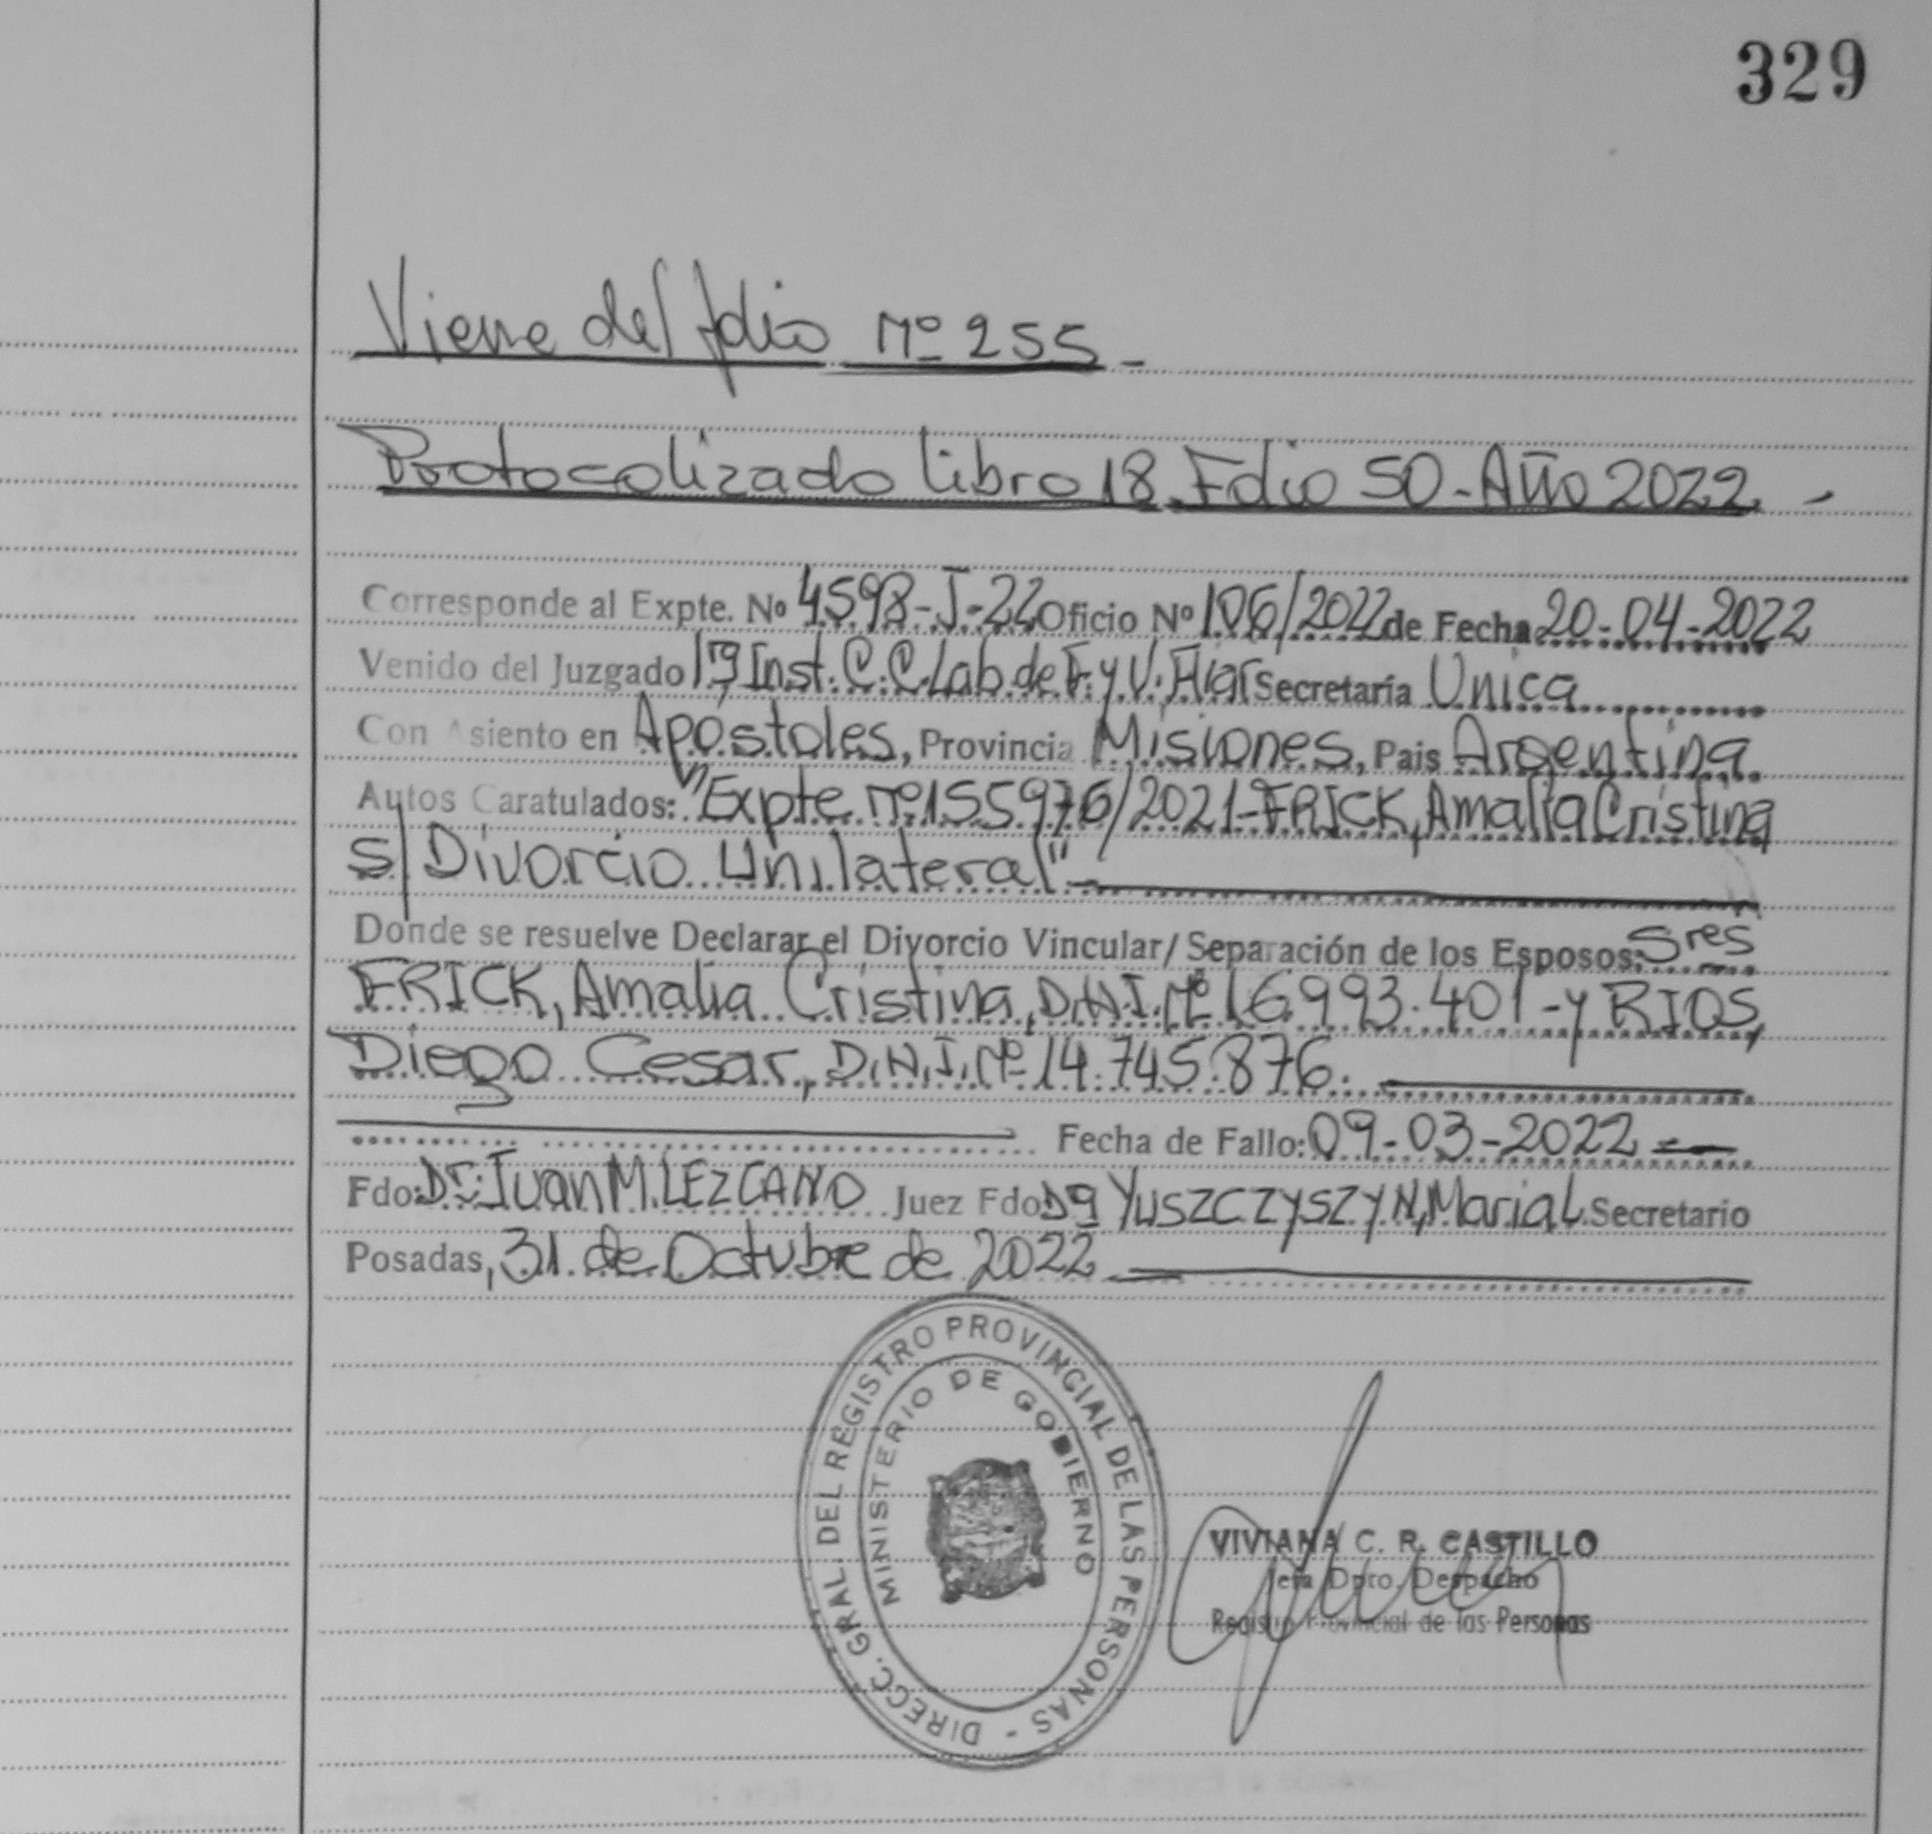 329
Viene del folio Nº 255-
Protocolizado Libro 18 Folio 50-Año 2022-
Corresponde al Expte. Nº 4598-J-22 Oficio Nº 106/2022 de Fecha 20-04-2022
Venido del Juzgado 1ra Inst. C.C. Lab. de F. y V. Fliar Secretaría Unica
Con Asiento en Apóstoles, Provincia Misiones, Pais Argentina.
Autos Caratulados: "Expte Nº155976/2021-FRICK, Amalia Cristina
s/ Divorcio Unilateral"-
Donde se resuelve Declarar el Divorcio Vincular/Separación de los Esposos: Sres
FRICK, Amalia Cristina, D.N.I. Nº 16.993.401-y RIOS,
Diego Cesar, D.N.I. Nº 14.745.876.
Fecha de Fallo: 09-03-2022
Fdo: Dr. Juan M. LEZCANO Juez Fdo Dra YUSZCZYSZYN, Maria L. Secretario
Posadas, 31 de Octubre de 2022
DIRECC. GRAL. DEL REGISTRO PROVINCIAL DE LAS PERSONAS -
MINISTERIO DE GOBIERNO
VIVIANA C. R. CASTILLO
Jefa Dpto. Despacho
Registro Provincial de las Personas